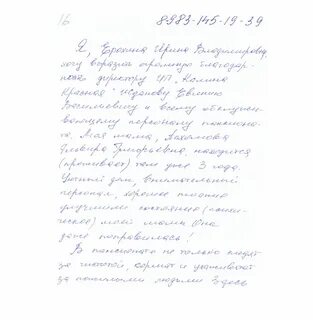 16 8983-145-19-39
Я, Ерохина Ирина Владимировна,
хочу выразить огромную благодар-
ность директору ИП "Калина
Красная" Евгению
Васильевичу и всему обслужи-
вающему персоналу пансиона-
та. Моя мама,
Григорьевна, находится
(проживает) там уже 3 года.
Уютный дом, внимательный
персонал, хорошее питание
улучшили состояние (психи-
ческое) моей мамы. Она
даже поправилась!
В пансионате не только следят
за чистотой, кормят и ухаживают
за пожилыми людьми. Здесь